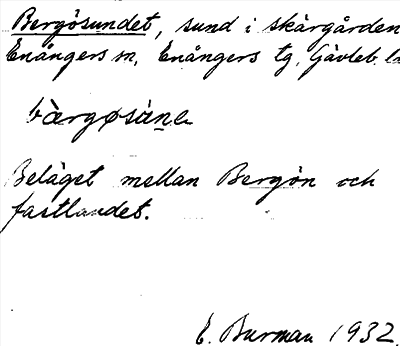 Bergösundet, sund i skärgården
Enångers sn, Enångers tg, Gävleb. l
bàrgøsùne
Beläget mellan Bergön och
fastlandet.
E. Burman 1932.